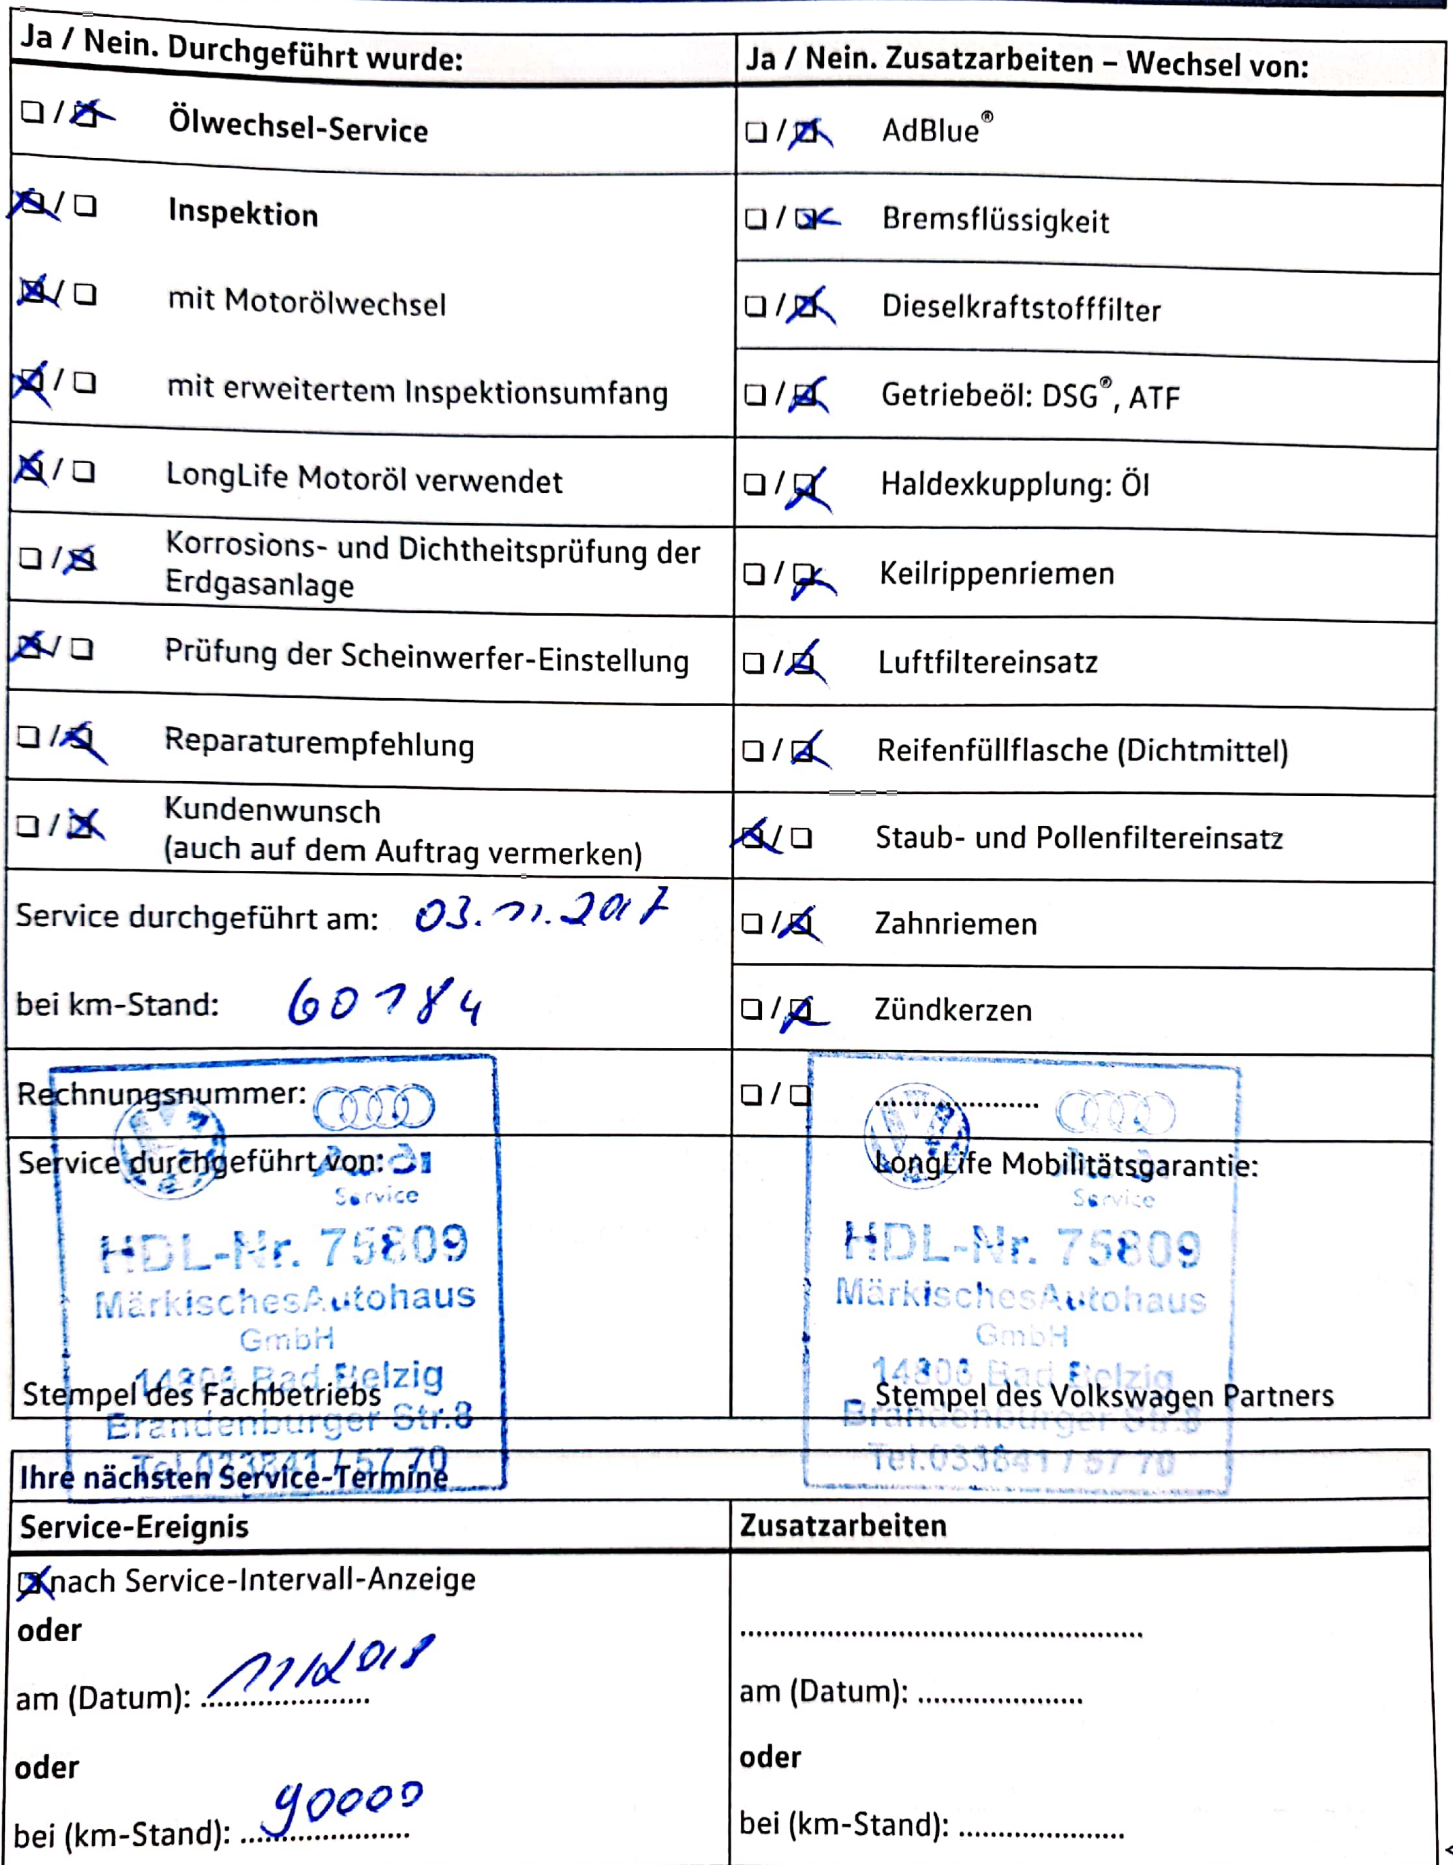 Ja / Nein. Durchgeführt wurde:
Ölwechsel-Service
Inspektion
mit Motorölwechsel
mit erweitertem Inspektionsumfang
LongLife Motoröl verwendet
Korrosions- und Dichtheitsprüfung der
Erdgasanlage
Prüfung der Scheinwerfer-Einstellung
Reparaturempfehlung
Kundenwunsch
(auch auf dem Auftrag vermerken)
Service durchgeführt am: 03.11.2017
bei km-Stand: 60184
Rechnungsnummer:
Service durchgeführt von:
Audi
Service
HDL-Nr. 75809
Märkisches Autohaus
GmbH
14806 Bad Belzig
Stempel des Fachbetriebs
Brandenburger Str.8
Tel.033841 / 57 70
Ja / Nein. Zusatzarbeiten – Wechsel von:
AdBlue®
Bremsflüssigkeit
Dieselkraftstofffilter
Getriebeöl: DSG®, ATF
Haldexkupplung: Öl
Keilrippenriemen
Luftfiltereinsatz
Reifenfüllflasche (Dichtmittel)
Staub- und Pollenfiltereinsatz
Zahnriemen
Zündkerzen
LongLife Mobilitätsgarantie:
Service
HDL-Nr. 75809
Märkisches Autohaus
GmbH
14806 Bad Belzig
Stempel des Volkswagen Partners
Brandenburger Str.8
Tel.033841 / 57 70
Ihre nächsten Service-Termine
Service-Ereignis
nach Service-Intervall-Anzeige
oder
am (Datum): 11/2018
oder
bei (km-Stand): 90000
Zusatzarbeiten
am (Datum):
oder
bei (km-Stand):